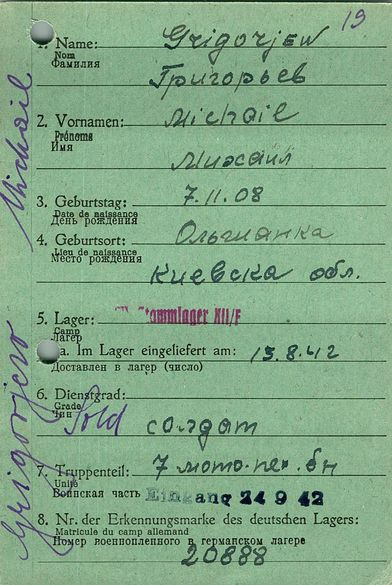 19
1. Name: Grigorjew
Nom
Фамилия
Григорьев
2. Vornamen: Michail
Prénoms
Имя
Михаил
3. Geburtstag: 7.11.08
Date de naissance
День рождения
4. Geburtsort: Ольшанка
Lieu de naissance
Место рождения
Киевска обл.
5. Lager: Stammlager XII/F
Camp
Лагерь
a. Im Lager eingeliefert am: 13.8.42
Доставлен в лагерь (число)
6. Dienstgrad:
Grade
Чин
Sold солдат
7. Truppenteil: 7 мото-пех. бн
Unité
Воинская часть Eingang 24 9 42
8. Nr. der Erkennungsmarke des deutschen Lagers:
Matricule du camp allemand
Номер военнопленного в германском лагере
20888
Grigorjew Michail